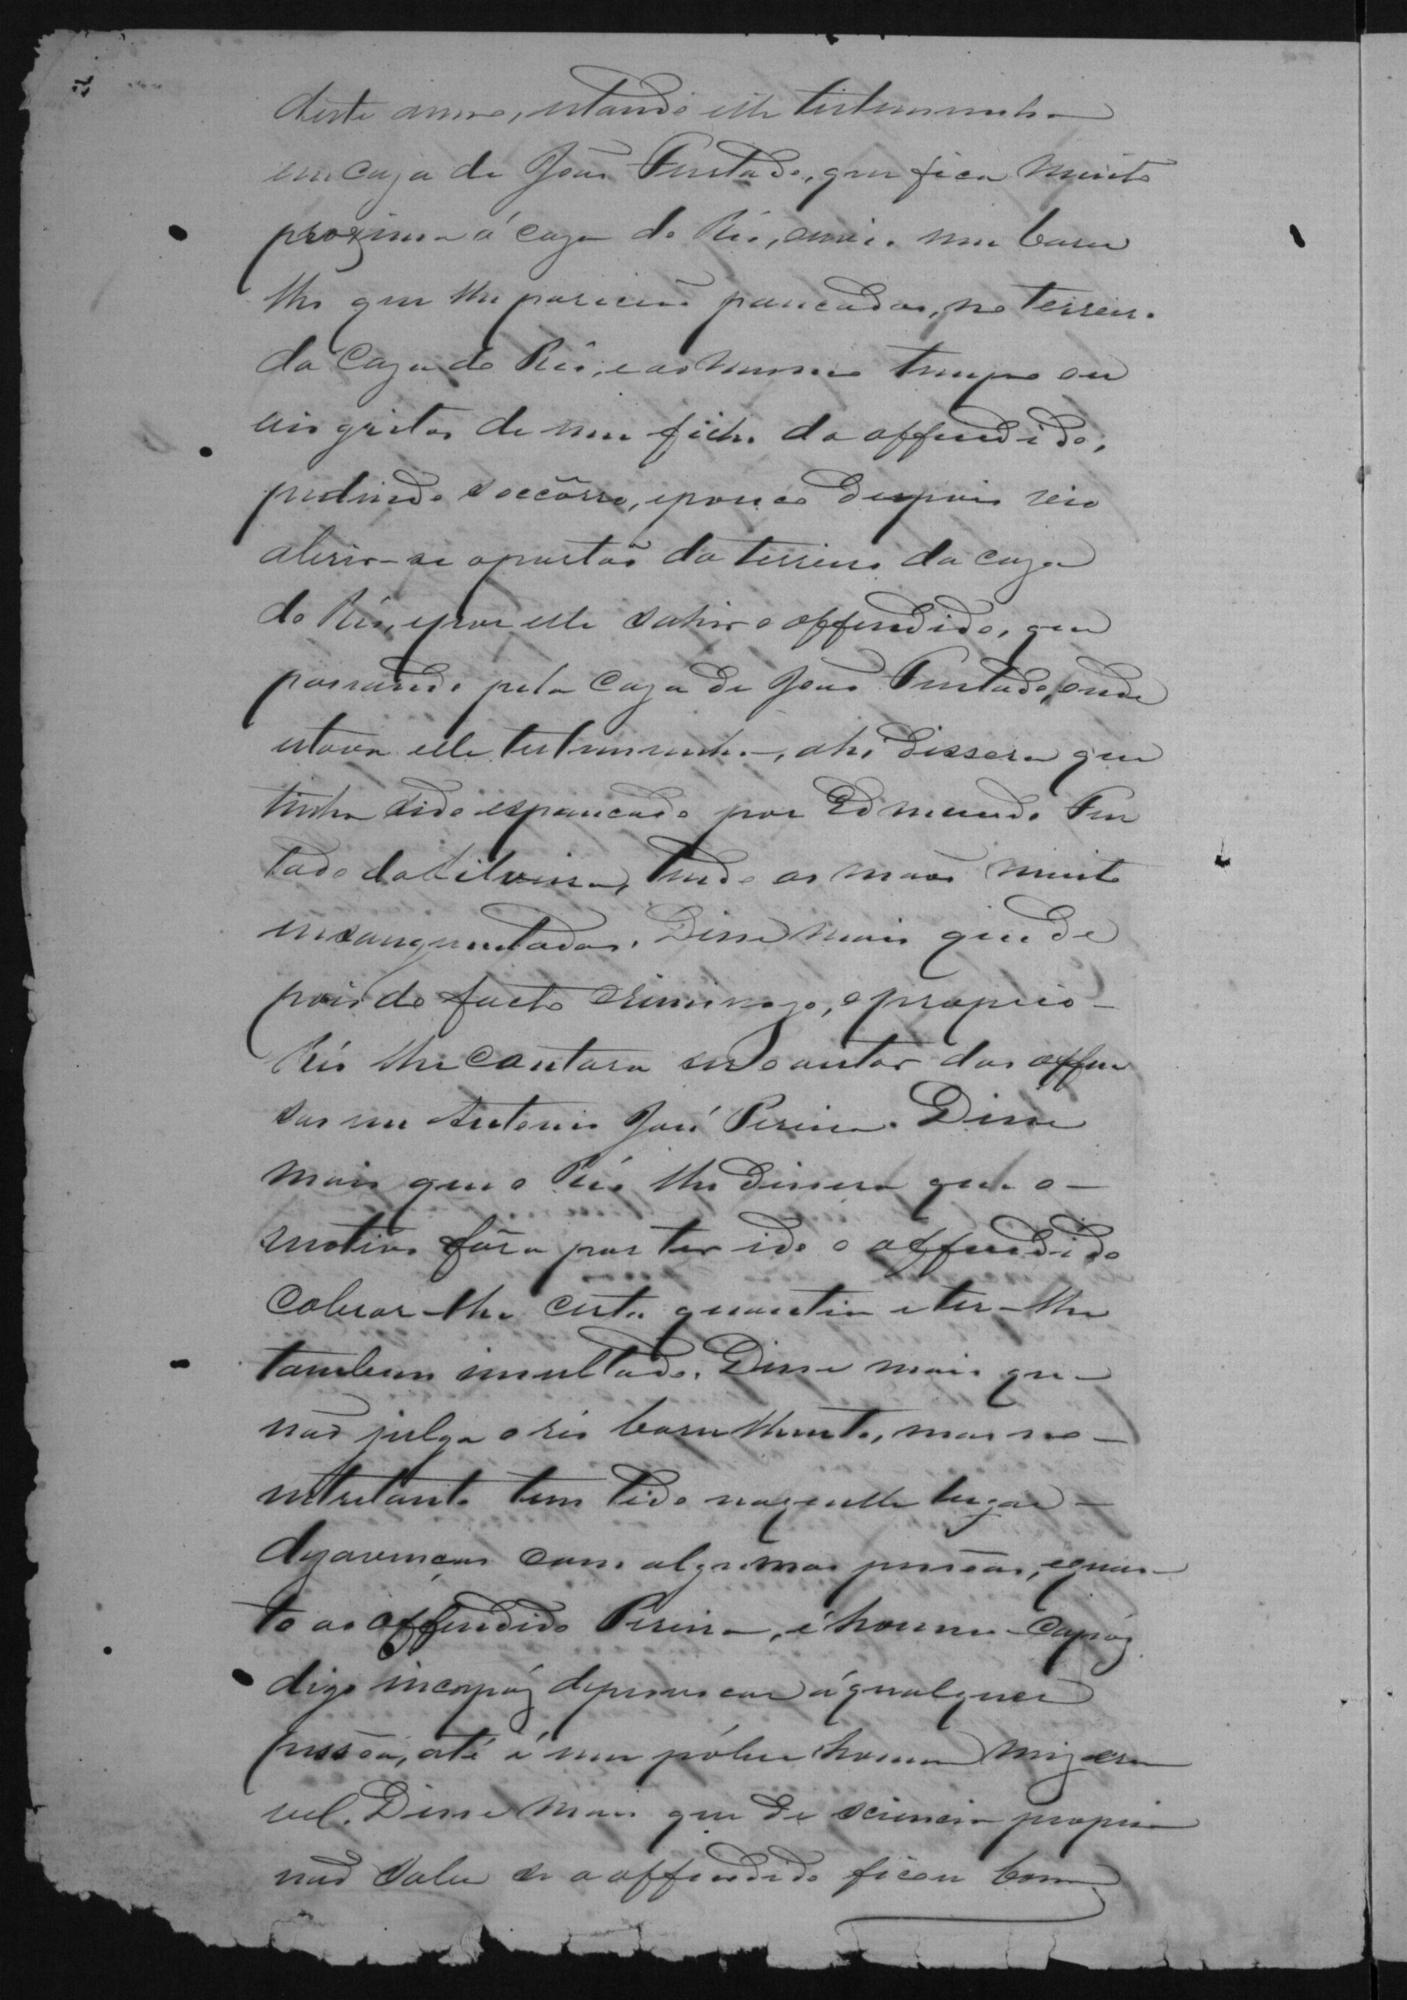 deste anno, estando elle testemunha
em caza de João Furtado, que fica muito
proxima á caza do Réo, ouvio um baru
lho que lhe pareceu pancadas, no terreiro
da Caza do Réo, e ao mesmo tempo ou
vio gritos de um filho do offendido,
pedindo soccôrro, e pouco depois vio
abrir-se o portão do terreiro da caza
do Réo, e por elle sahir o offendido, que
passando pela Caza de João Furtado, onde
estava elle testemunha, ahi dissera que
tinha sido espancado por Edmundo Fur
tado da Silveira, tendo as mãos muito
ensanguentadas. Disse mais que de
pois do facto criminozo, o proprio
Réo lhe contara ser o autor das offen
sas em Antonio José Pereira. Disse
mais que o Réo lhe dissera que o
motivo fôra por ter ido o offendido
Cobrar-lhe certa quantia e ter-lhe
tambem insultado. Disse mais que
não julga o réo barulhento, mas no
entretanto tem tido naquelle lugar
dezavenças com algumas pessôas, e quan
to ao offendido Pereira, é homem Capáz
digo incapáz de provocar á qualquer
pessôa, até é um póbre homem mizera
vel. Disse mais que de sciencia propria
não sabe se o offendido ficou bom